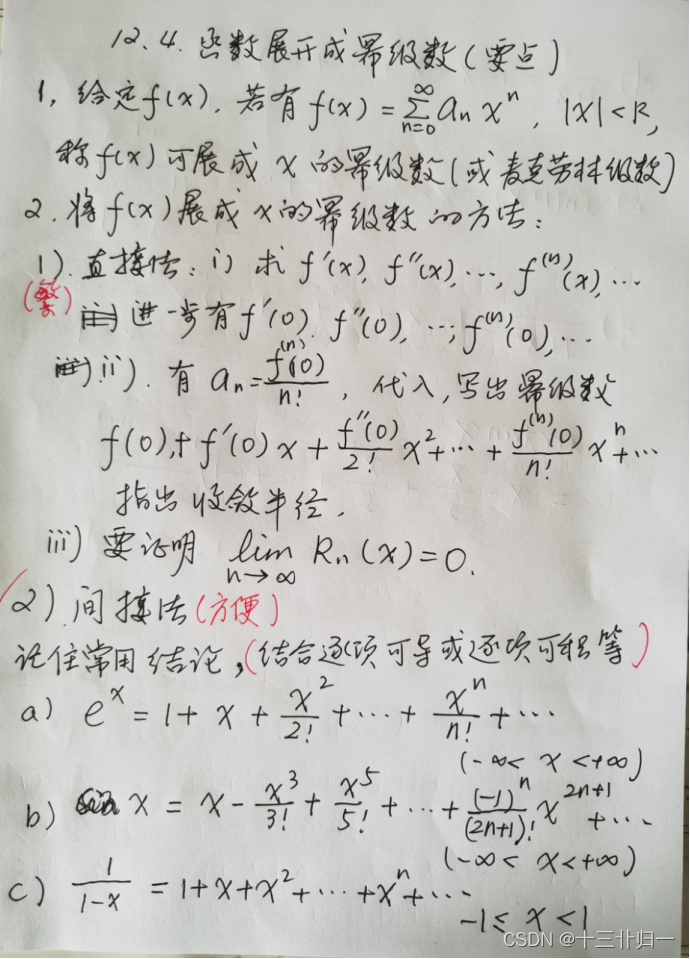 12.4. 函数展开成幂级数(要点)
1, 给定f(x), 若有 f(x) = ∑_{n=0}^{∞} aₙ xⁿ, |x| < R,
称f(x)可展成 x 的幂级数(或麦克劳林级数)
2. 将f(x)展成x的幂级数的方法:
1). 直接法: i) 求 f′(x), f″(x), …, f⁽ⁿ⁾(x), …
(繁)
进一步有f′(0), f″(0), …, f⁽ⁿ⁾(0), …
ii). 有 aₙ = f⁽ⁿ⁾(0)/n!, 代入, 写出幂级数
f(0) + f′(0)x + f″(0)/2! x² + … + f⁽ⁿ⁾(0)/n! xⁿ + …
指出收敛半径.
iii) 要证明 lim_{n→∞} Rₙ(x) = 0.
2) 间接法(方便)
记住常用结论, (结合逐项可导或逐项可积等)
a) eˣ = 1 + x + x²/2! + … + xⁿ/n! + …
(-∞ < x < +∞)
b) sin x = x - x³/3! + x⁵/5! + … + (-1)ⁿ/(2n+1)! x²ⁿ⁺¹ + …
(-∞ < x < +∞)
c) 1/(1-x) = 1 + x + x² + … + xⁿ + …
-1 ≤ x < 1
CSDN @十三卝归一